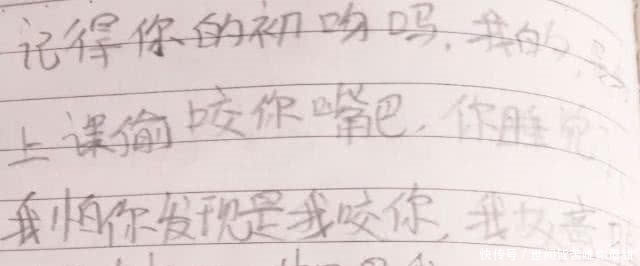 记得你的初吻吗，我的，是
上课偷咬你嘴巴，你睡觉
我怕你发现是我咬你，我故意
快传号/